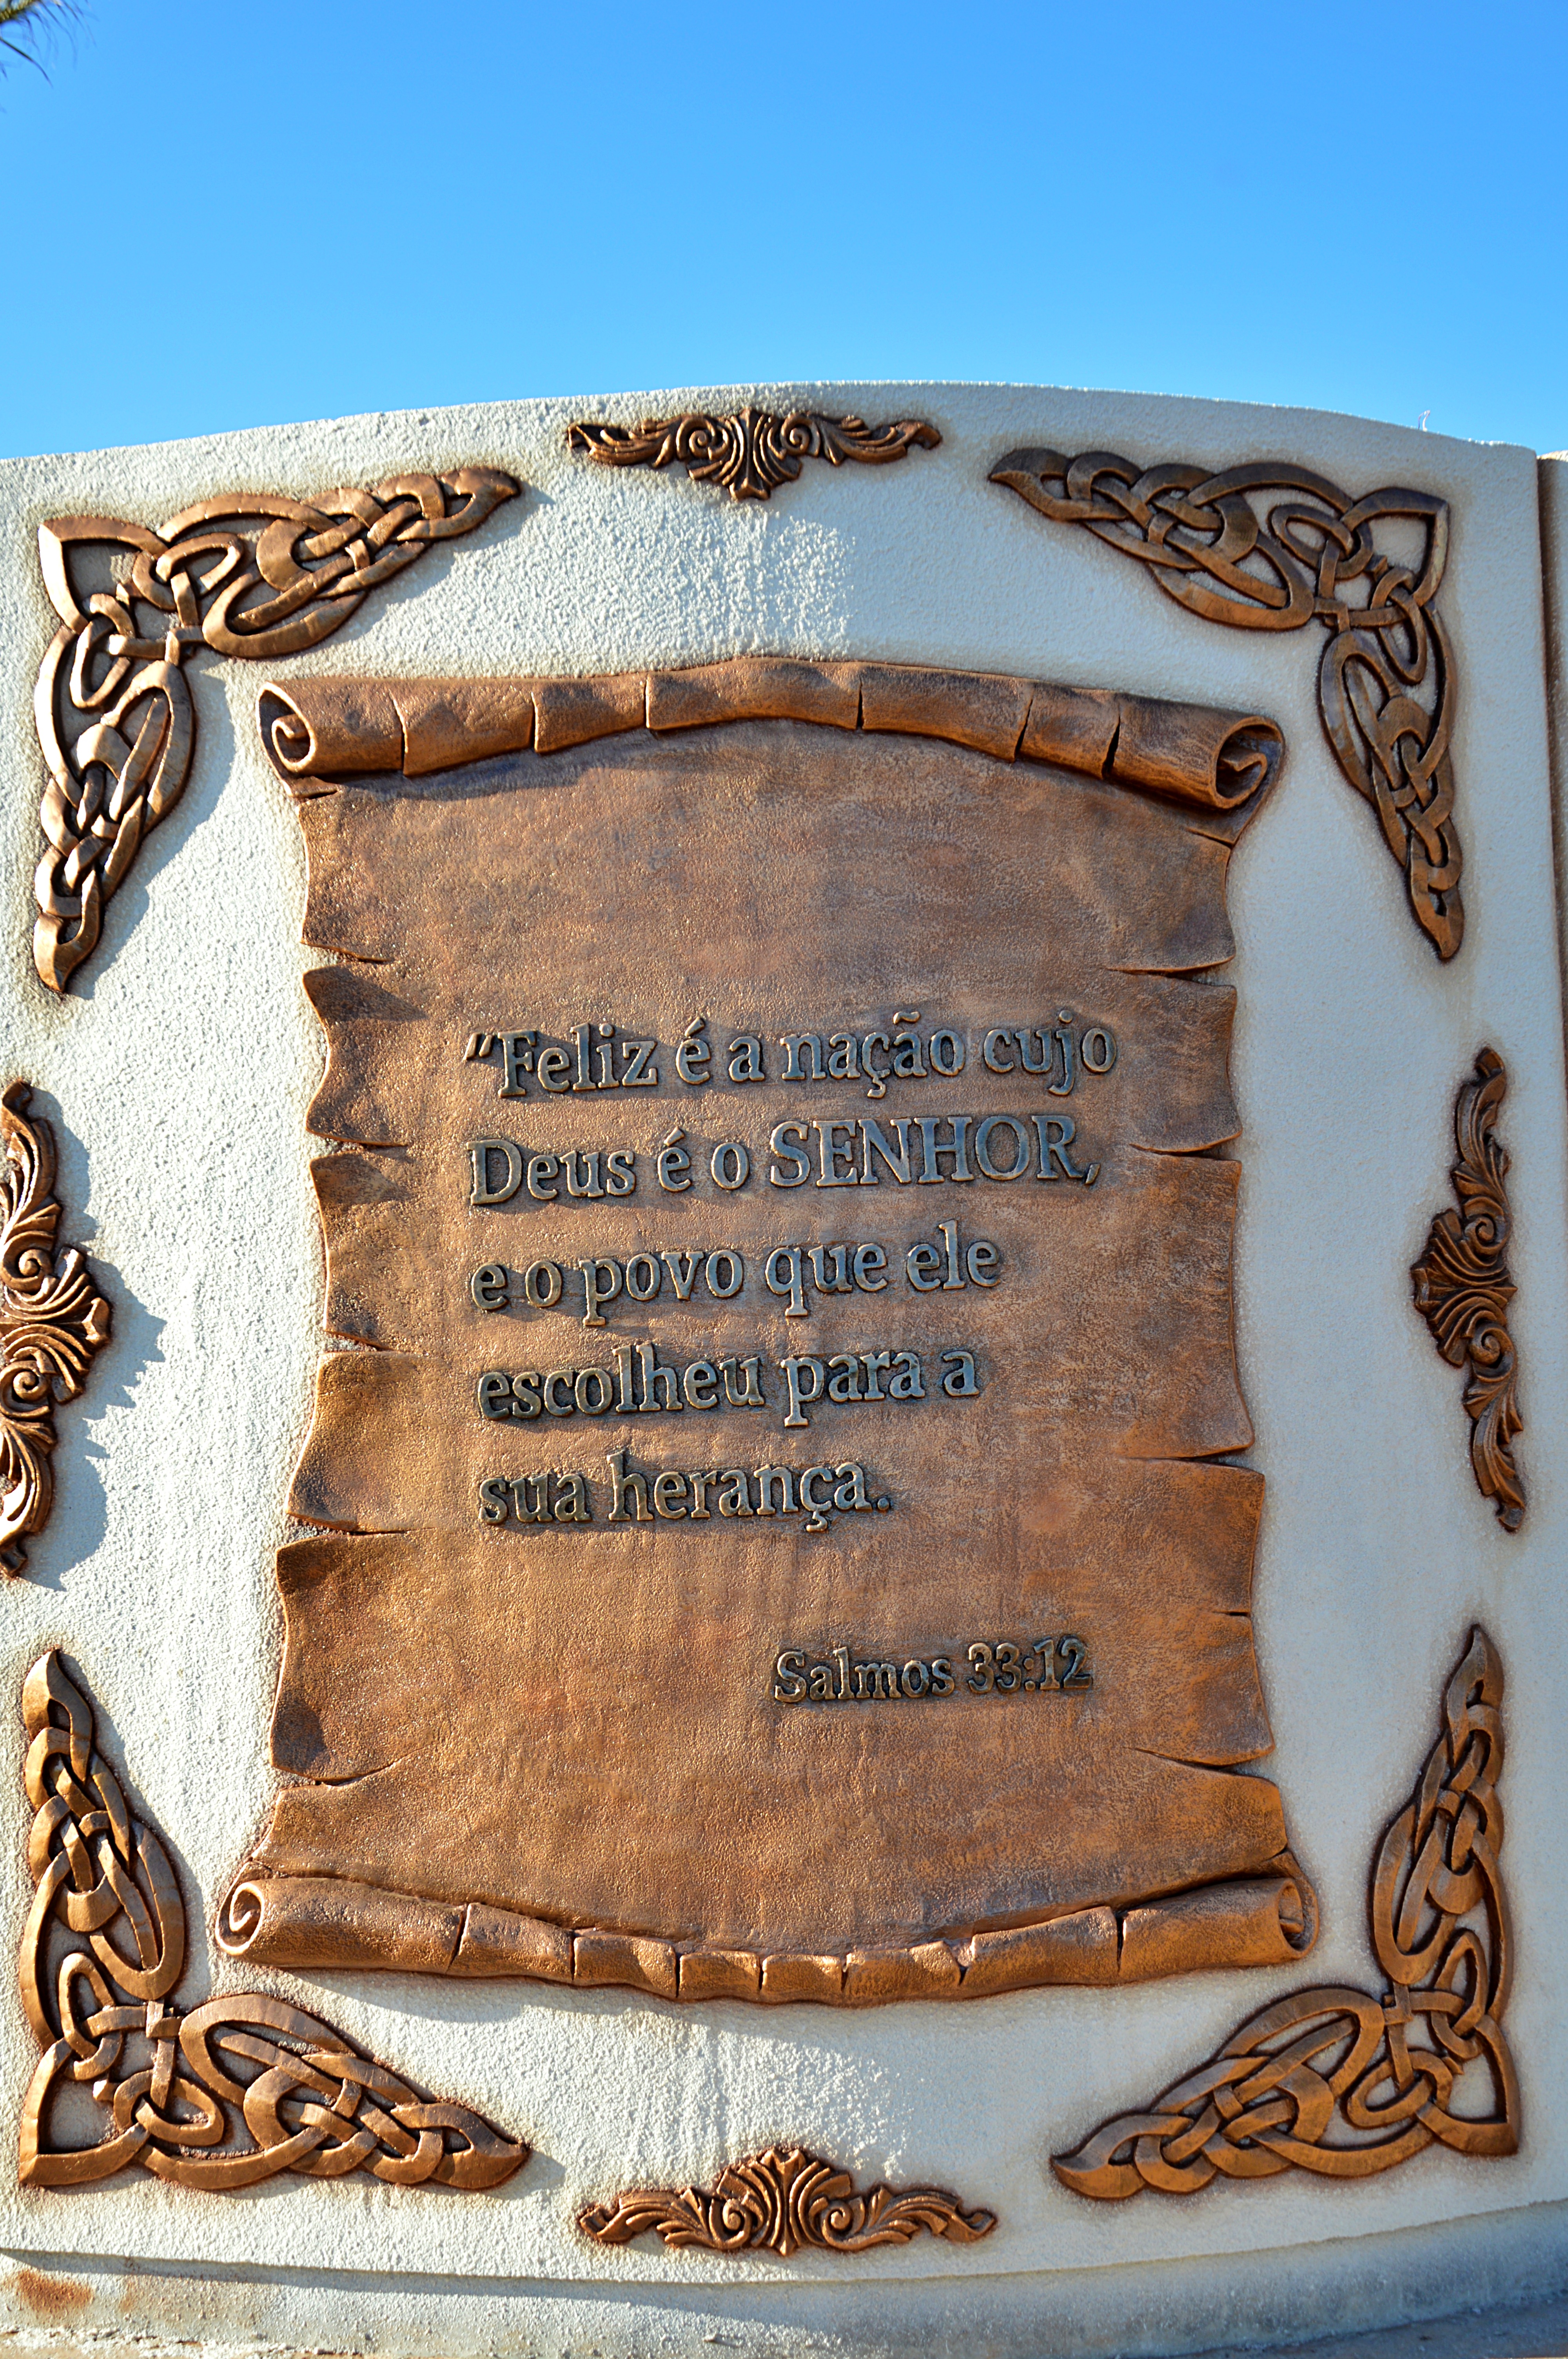 "Feliz é a nação cujo
Deus é o SENHOR,
e o povo que ele
escolheu para a
sua herança.
Salmos 33:12